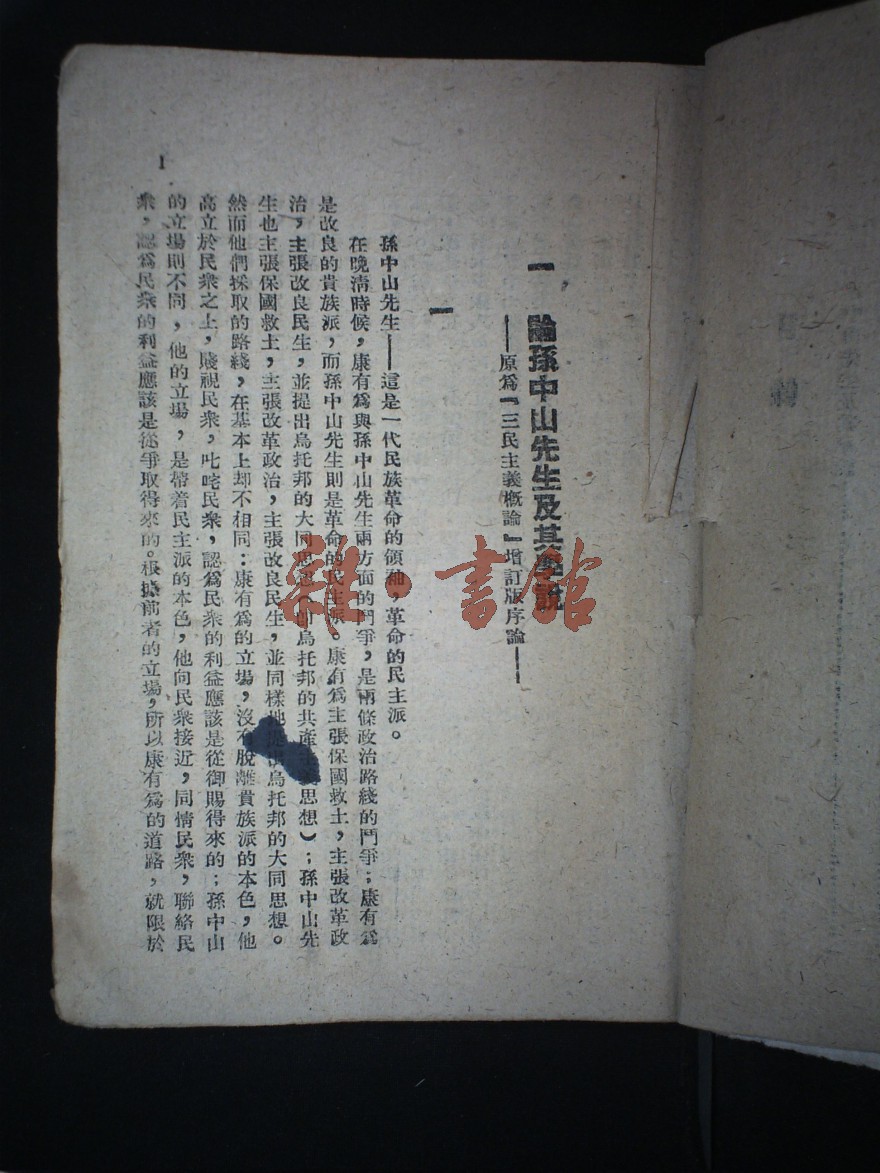 一 論孫中山先生及其學說
——原爲『三民主義概論』增訂版序論——
一
孫中山先生——這是一代民族革命的領袖，革命的民主派。
在晚淸時候，康有爲與孫中山先生兩方面的鬥爭，是兩條政治路綫的鬥爭；康有爲
是改良的貴族派，而孫中山先生則是革命的民主派。康有爲主張保國救土，主張改革政
治，主張改良民生，並提出烏托邦的大同思想（卽烏托邦的共產主義思想）；孫中山先
生也主張保國救土，主張改革政治，主張改良民生，並同樣地提出烏托邦的大同思想。
然而他們採取的路綫，在基本上却不相同：康有爲的立場，沒有脫離貴族派的本色，他
高立於民衆之上，賤視民衆，叱咤民衆，認爲民衆的利益應該是從御賜得來的；孫中山
的立場則不同，他的立場，是帶着民主派的本色，他向民衆接近，同情民衆，聯絡民
衆，認爲民衆的利益應該是從爭取得來的。根據前者的立場，所以康有爲的道路，就限於
1
雜·書館